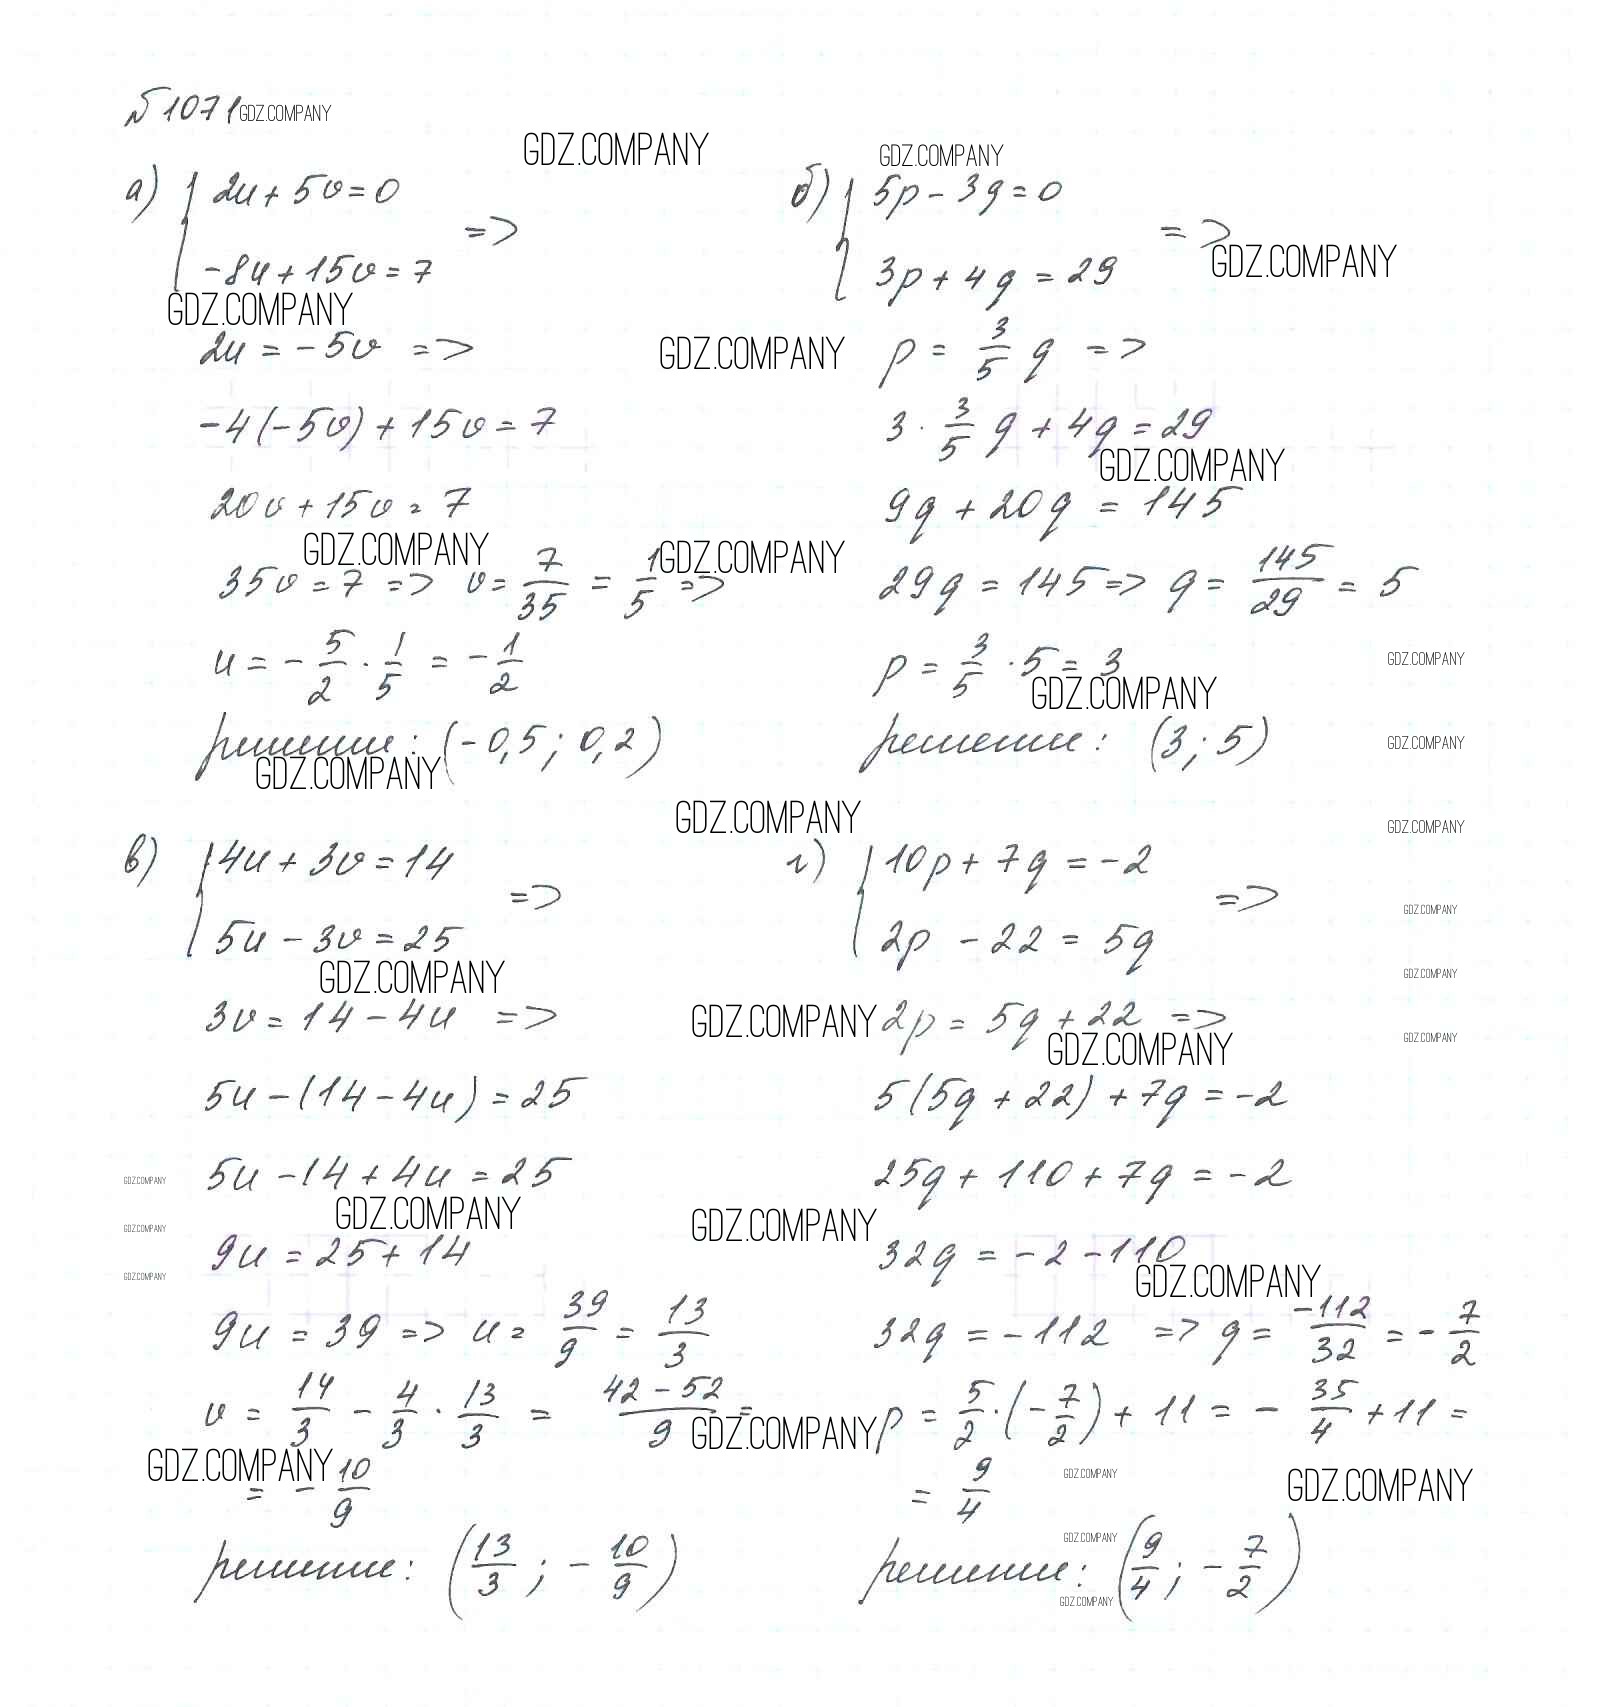 №1071 GDZ.COMPANY
GDZ.COMPANY
а) { 2u + 5v = 0
-8u + 15v = 7 =>
GDZ.COMPANY
2u = -5v =>
-4(-5v) + 15v = 7
20v + 15v = 7
GDZ.COMPANY
35v = 7 => v = 7/35 = 1/5 =>
GDZ.COMPANY
u = - 5/2 · 1/5 = - 1/2
решение: (-0,5; 0,2)
GDZ.COMPANY
GDZ.COMPANY
б) { 5p - 3q = 0
3p + 4q = 29 =>
GDZ.COMPANY
GDZ.COMPANY
p = 3/5 q =>
3 · 3/5 q + 4q = 29
GDZ.COMPANY
9q + 20q = 145
29q = 145 => q = 145/29 = 5
p = 3/5 · 5 = 3
GDZ.COMPANY
GDZ.COMPANY
решение: (3; 5)
GDZ.COMPANY
GDZ.COMPANY
GDZ.COMPANY
в) { 4u + 3v = 14
5u - 3v = 25 =>
GDZ.COMPANY
3v = 14 - 4u =>
5u - (14 - 4u) = 25
5u - 14 + 4u = 25
GDZ.COMPANY
GDZ.COMPANY
GDZ.COMPANY
9u = 25 + 14
GDZ.COMPANY
9u = 39 => u = 39/9 = 13/3
v = 14/3 - 4/3 · 13/3 = 42 - 52/9 =
GDZ.COMPANY
= - 10/9
решение: (13/3; - 10/9)
г) { 10p + 7q = -2
2p - 22 = 5q =>
GDZ.COMPANY
GDZ.COMPANY
GDZ.COMPANY
GDZ.COMPANY
2p = 5q + 22 =>
GDZ.COMPANY
5(5q + 22) + 7q = -2
25q + 110 + 7q = -2
GDZ.COMPANY
32q = -2 - 110
GDZ.COMPANY
32q = -112 => q = -112/32 = - 7/2
GDZ.COMPANY
p = 5/2 · (- 7/2) + 11 = - 35/4 + 11 =
= 9/4
GDZ.COMPANY
GDZ.COMPANY
GDZ.COMPANY
решение: (9/4; - 7/2)
GDZ.COMPANY